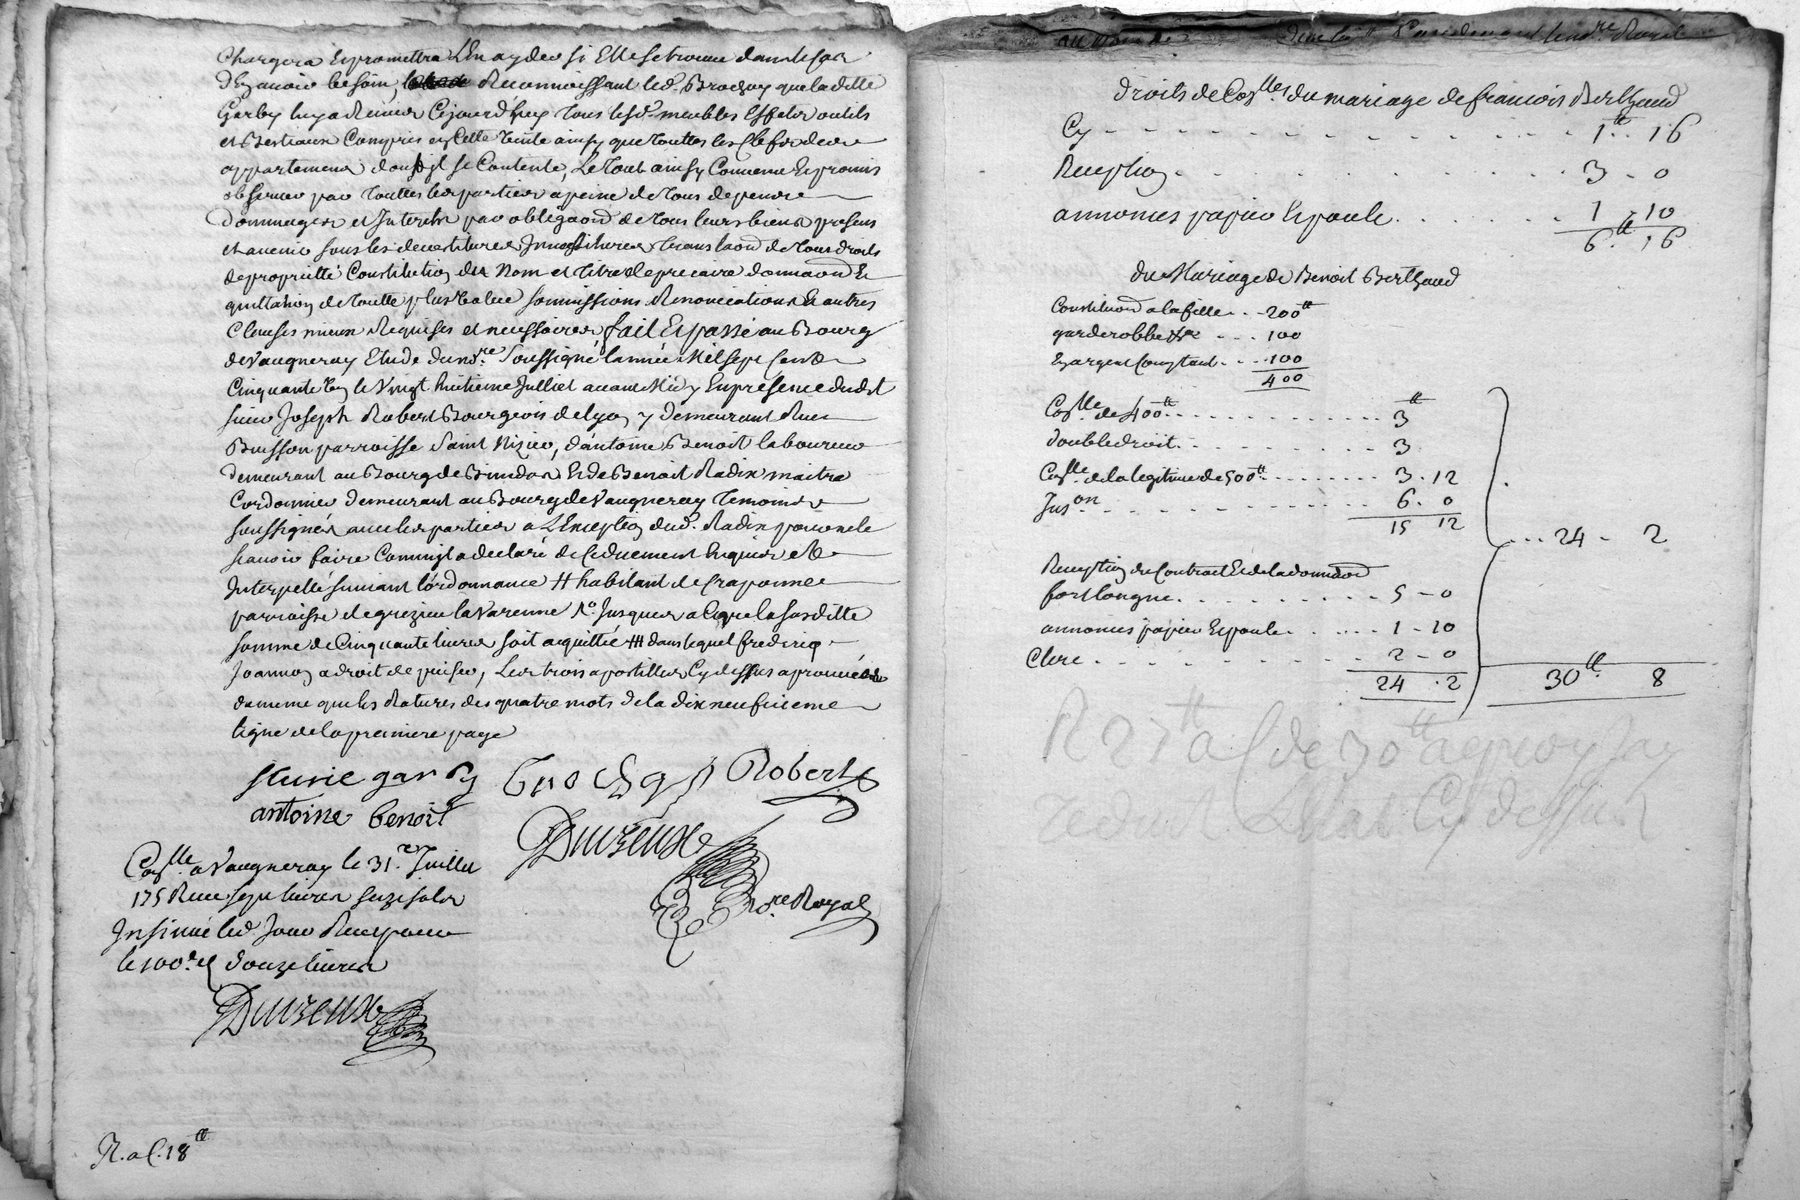 chargera et promettra l'en ayder si elle se trouve dans le cas
d'en avoir besoin, Reconnoissant led. Brochay que la ditte
Garby luy a Remis Cejourd'huy tous lesd. meubles Effets outils
et Bestiaux Compris en Celle vente ainsy que touttes les Clefs des
appartemens dont il se Contente, Le tout ainsy Convenu et promis
observer par touttes les parties a peine de tous depens
dommages et Interets par obligaon de tous leurs biens presens
et avenir sous les devestitures Investitures translaon de tous droits
de proprietté Constitution de Nom et titre de precaire donnaon et
quittation de toutte plus value soumissions Renonciations et autres
Clauses mieux Requises et necessaires, fait et passé au Bourg
de Vaugneray Etude du no.re soussigné l'année Mil sept Cent
Cinquante le Vingt huitieme Julliet avant Midy En presence dudit
sieur Joseph Robert Bourgeois de Lyon y demeurant Rue
Buisson parroisse Saint Nizier, d'antoine Benoit laboureur
demeurant au Bourg de Brindas et de Benoit Radix maitre
Cordonnier demeurant au Bourg de Vaugneray temoins
soussignés avec les parties a L'Exception dud. Radix pour ne le
scavoir faire Comme il a declaré de ce duement Enquis et
Interpellé suivant l'ordonnance # habitant de Craponne
parroisse de grezieu la Varenne Jusques a Ce que la susditte
somme de Cinquante livres soit acquittée ## dans lequel frederiq
Joannon a droit de puiser, Les trois apostilles Cy dessus aprouvées
de meme que les Ratures des quatre mots de la dix neufvieme
ligne de la premiere page
garby Brochay Robert
antoine benoit
Duizeux
no.re Royal
Con.lle a Vaugneray le 31.e Juillet
175 Receu sept livres seize sols
Insinué led. Jour Receu pour
le 100.e d douze livres
Duizeux
R. al. 18 ₶
droits de Con.lles du mariage de francois Berthaud
Cy - - - 1 ₶ . 16
Reception . . . 3 - 0
annonces papier Expoule . . . 1 - 10
6 ₶ . 16
du Mariage de Benoit Berthaud
Constituaon a la fille . . . 200 ₶
garderobbe &c - - - 100
En argent Comptant . . . 100
400
Con.lle de 400 ₶ . . . 3 ₶
double droit . . . 3
Con.lle de la legitime de 500 ₶ . . . 3 . 12
Ins.on . . . 6 . 0
15 12
. . . 24 - 2
Reception du Contract Et de la donnaon
fort longue . . . 5 - 0
annonces papier Expoule . . . 1 - 10
Clerc . . . 2 - 0
24 . 2
30 ₶ 8